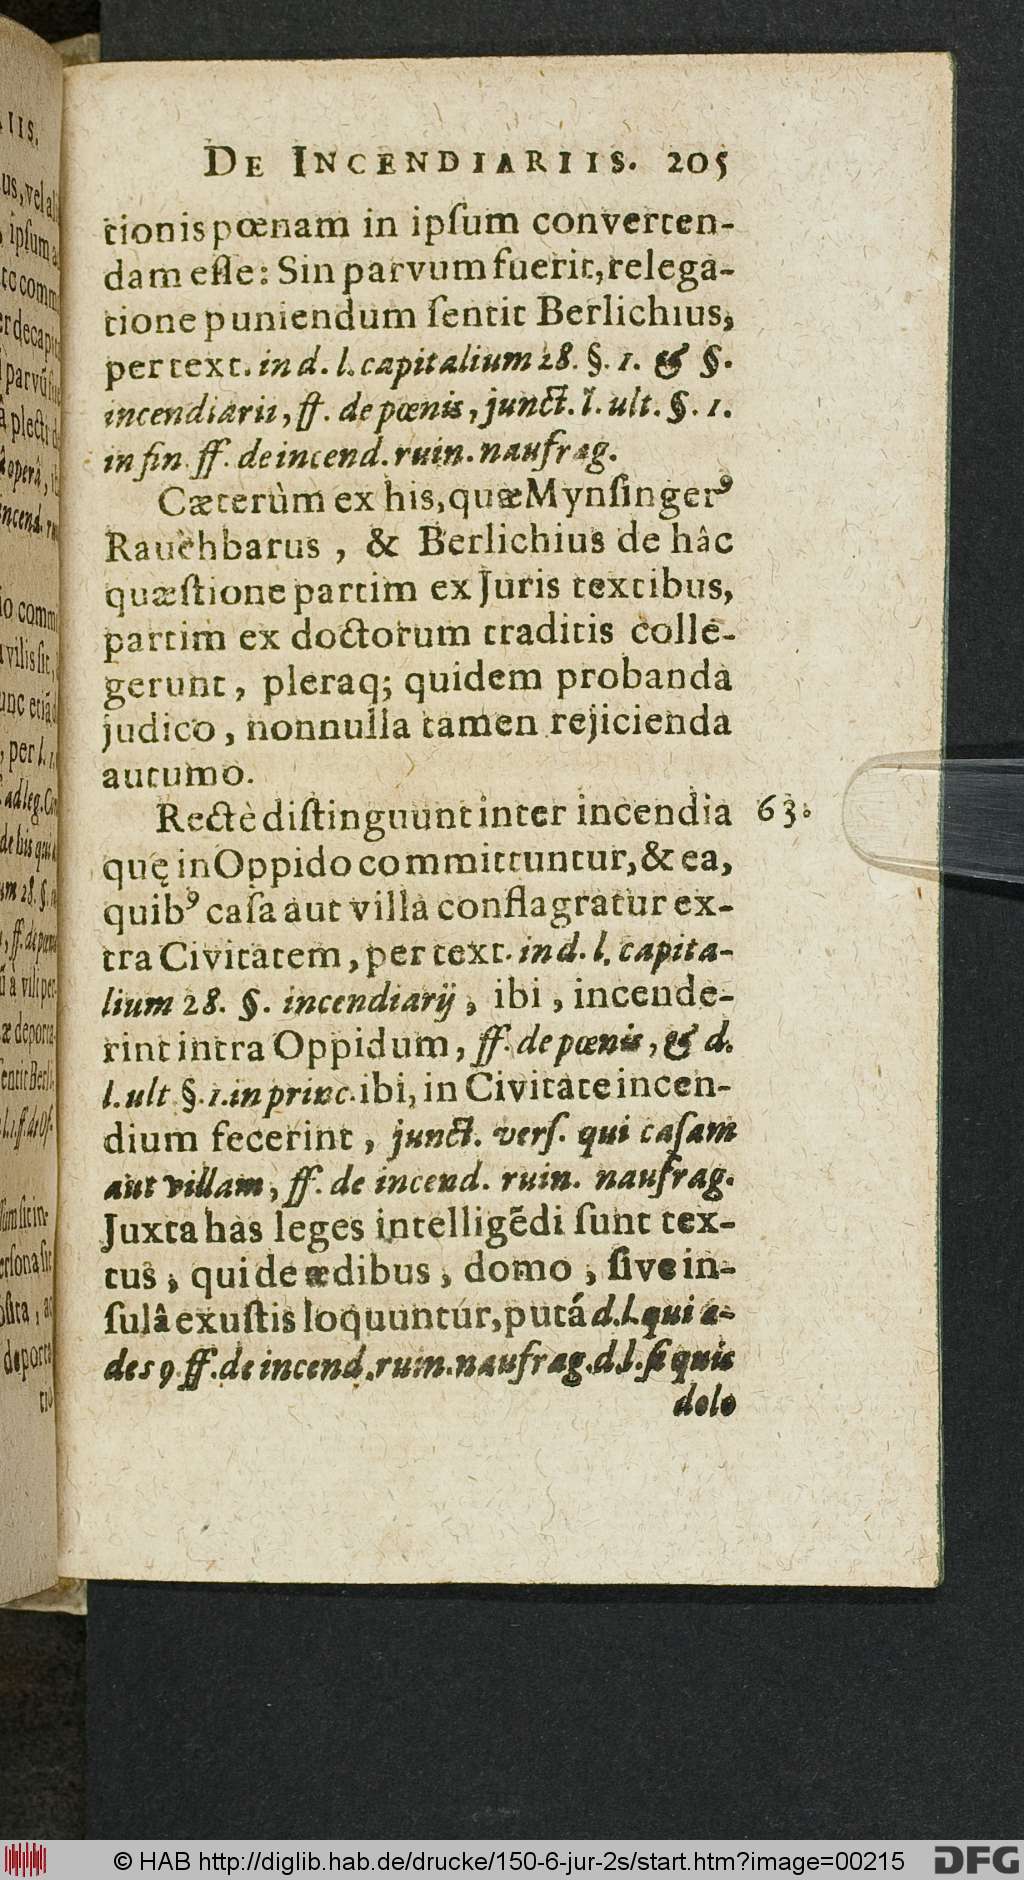 DE INCENDIARIIS. 205
tionis pœnam in ipſum converten-
dam eſſe: Sin parvum fuerit, relega-
tione puniendum ſentit Berlichius,
per text. in d. l. capitalium 28. §. 1. & §.
incendiarii, ff. de pœnis, junct. l. ult. §. 1.
in fin. ff. de incend. ruin. naufrag.
Cæterùm ex his, quæ Mynſingerꝰ
Rauchbarus, & Berlichius de hâc
quæſtione partim ex Juris textibus,
partim ex doctorum traditis colle-
gerunt, pleraq; quidem probanda
judico, nonnulla tamen rejicienda
autumo.
Rectè diſtinguunt inter incendia 63.
quę in Oppido committuntur, & ea,
quibꝰ caſa aut villa conflagratur ex-
tra Civitatem, per text. in d. l. capita-
lium 28. §. incendiarij, ibi, incende-
rint intra Oppidum, ff. de pœnis, & d.
l. ult §. 1. in princ. ibi, in Civitate incen-
dium fecerint, junct. verſ. qui caſam
aut villam, ff. de incend. ruin. naufrag.
Juxta has leges intelligẽdi ſunt tex-
tus, qui de ædibus, domo, ſive in-
ſulâ exuſtis loquuntur, putá d. l. qui a-
des 9. ff. de incend. ruin. naufrag. d. l. ſi quis
dolo
© HAB http://diglib.hab.de/drucke/150-6-jur-2s/start.htm?image=00215
DFG